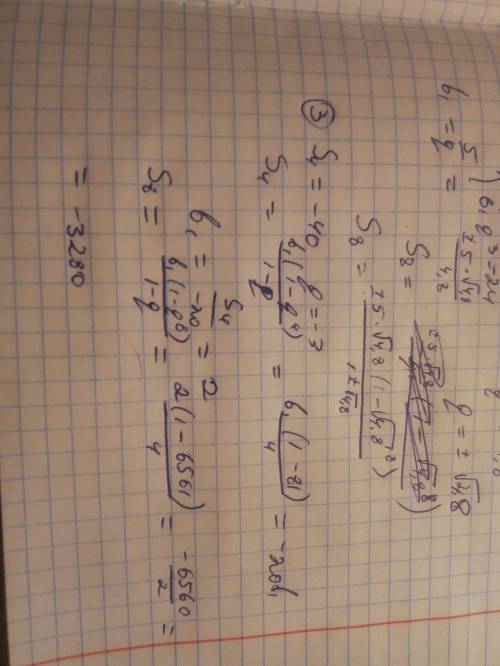 b₁q³=24
b₁ = 5/q = ±5·√4,8/4,8    q = ±√4,8
S₈ =
S₈ = ±5·√4,8(1-√4,8⁸)/1±√4,8
③ S₄ = -40    q = -3
S₄ = b₁(1-q⁴)/1-q = b₁(1-81)/4 = -20b₁
b₁ = S₄/-20 = 2
S₈ = b₁(1-q⁸)/1-q = 2(1-6561)/4 = -6560/2 =
= -3280